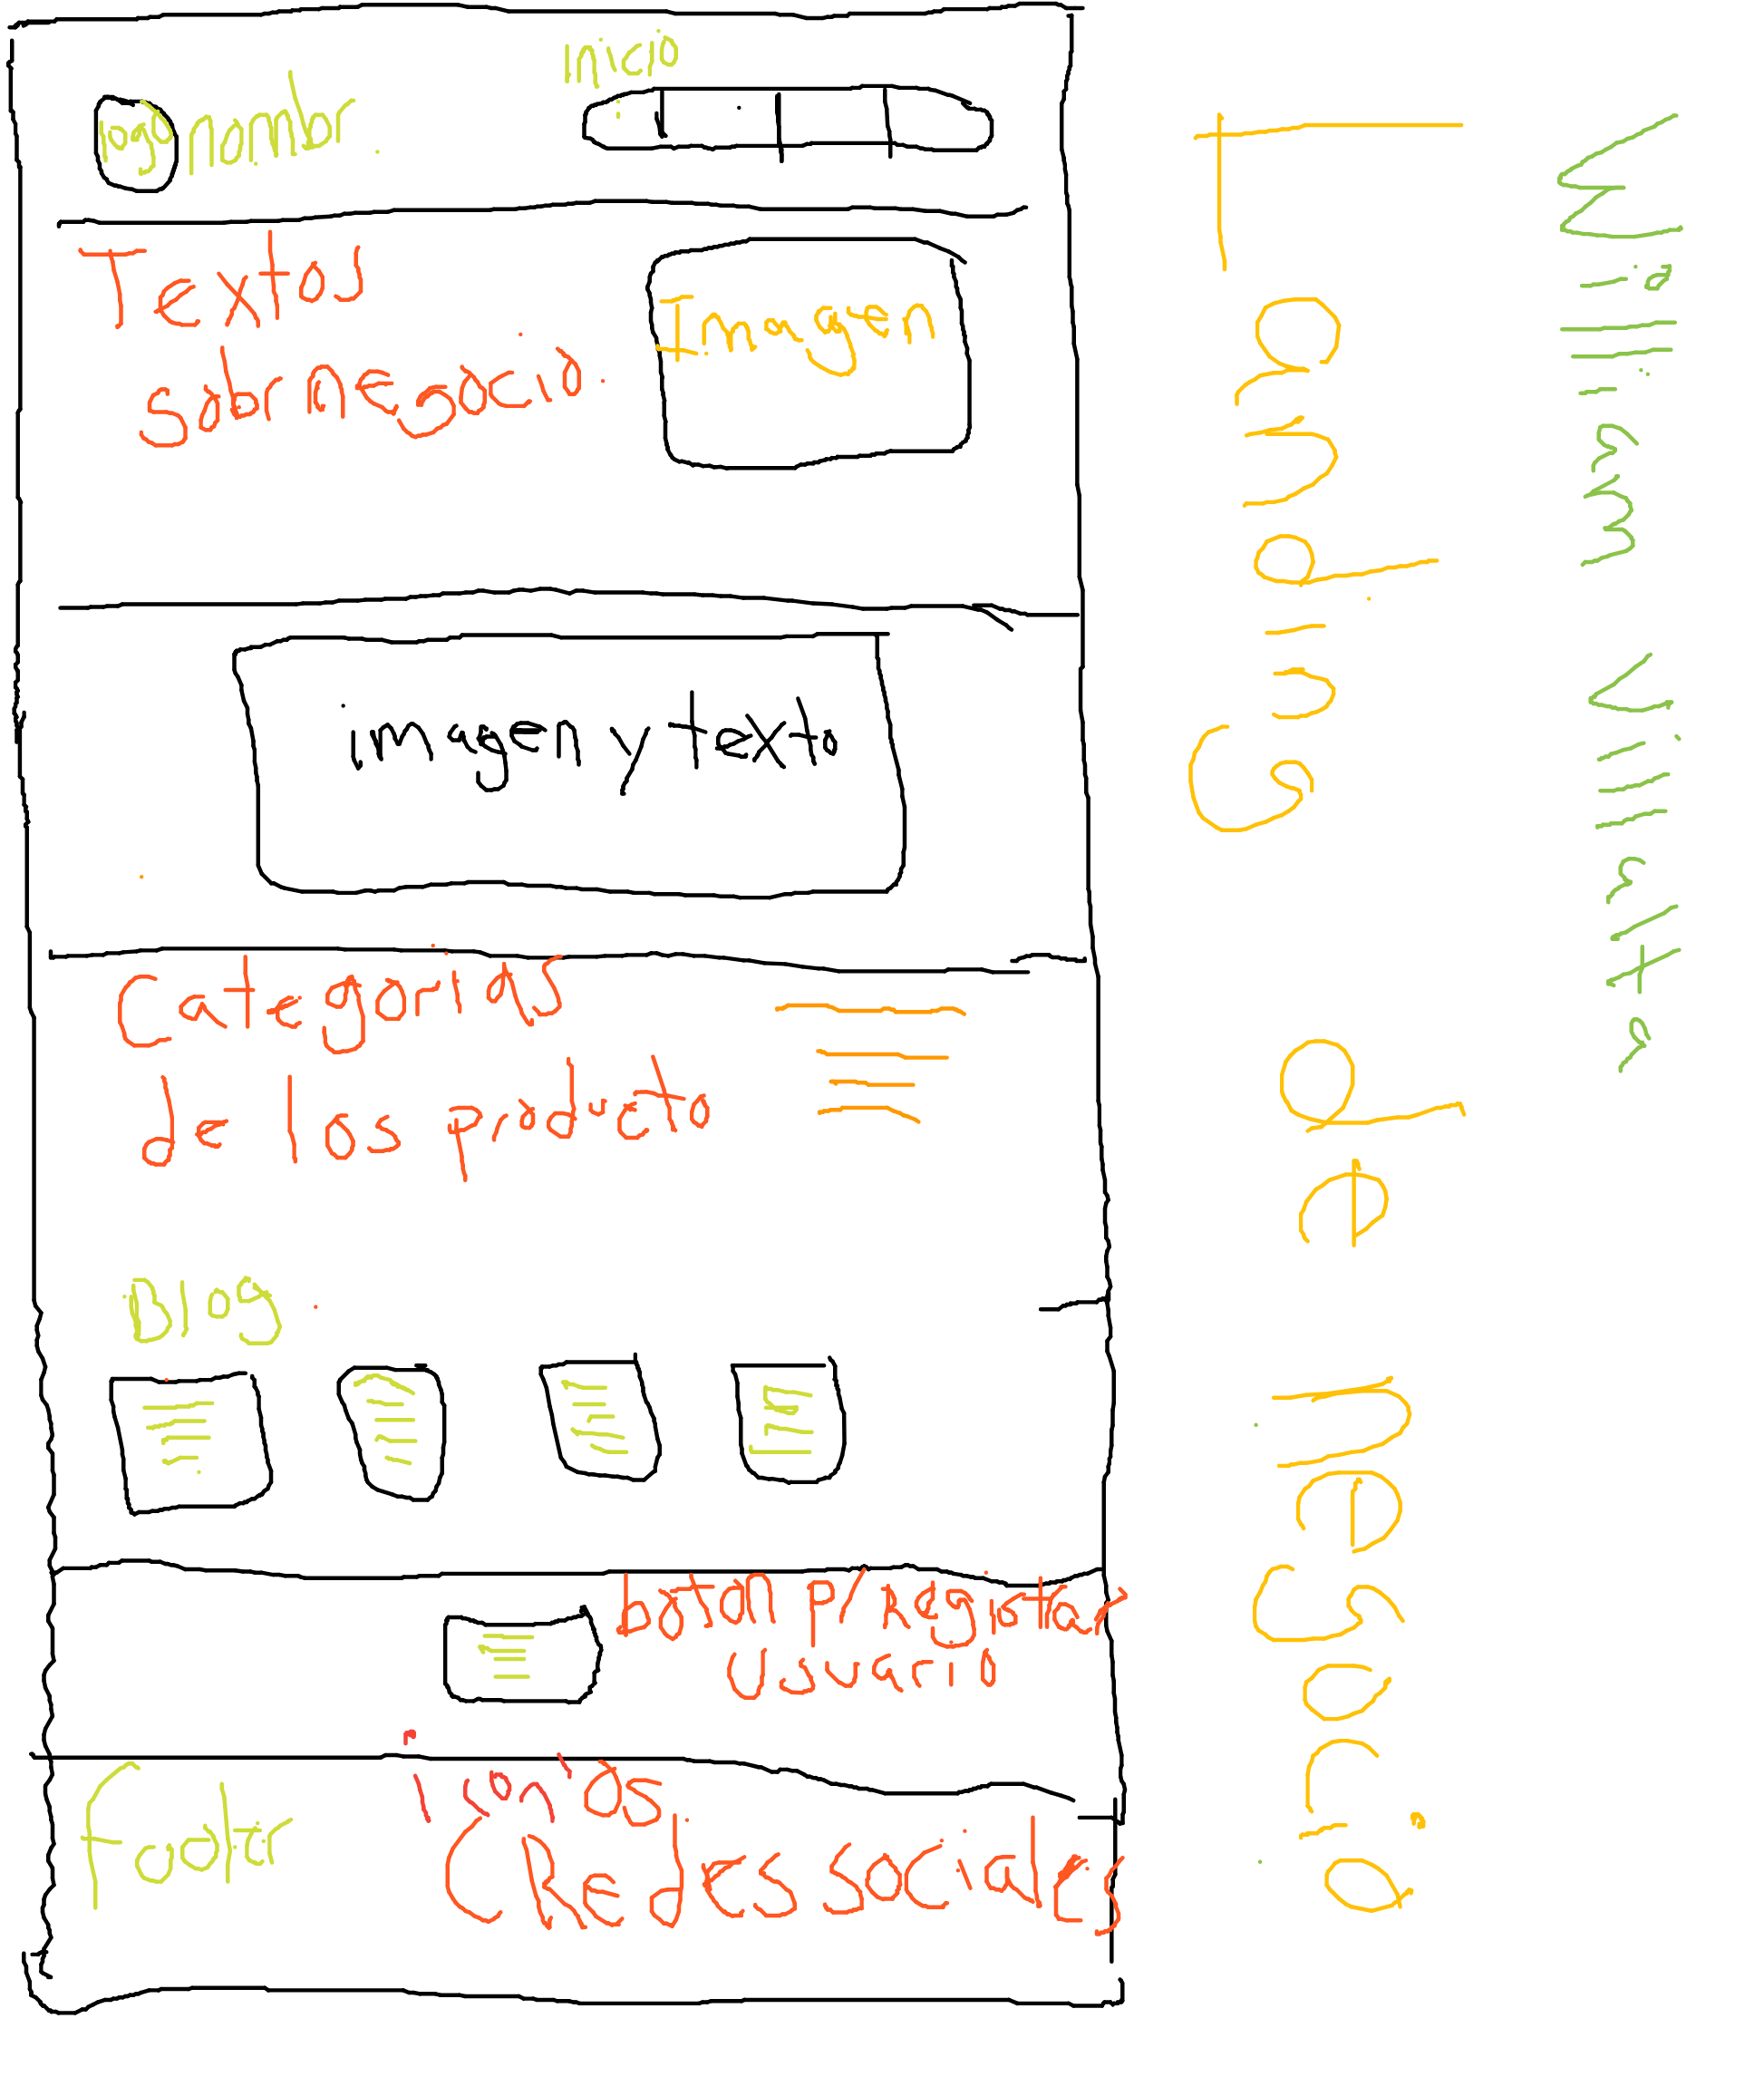 inicio
logo nombr
Textos
sobr negocio
Imagen
imgen y texto
Categorias
de los producto
Blog
boton p/ registrar
Usuario
footer
Redes sociales
Landing de negocio
William Villalta